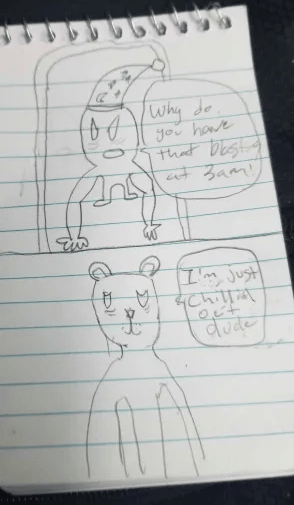 Why do
you have
that blasting
at 3am!
I'm just
chillin
out
dude